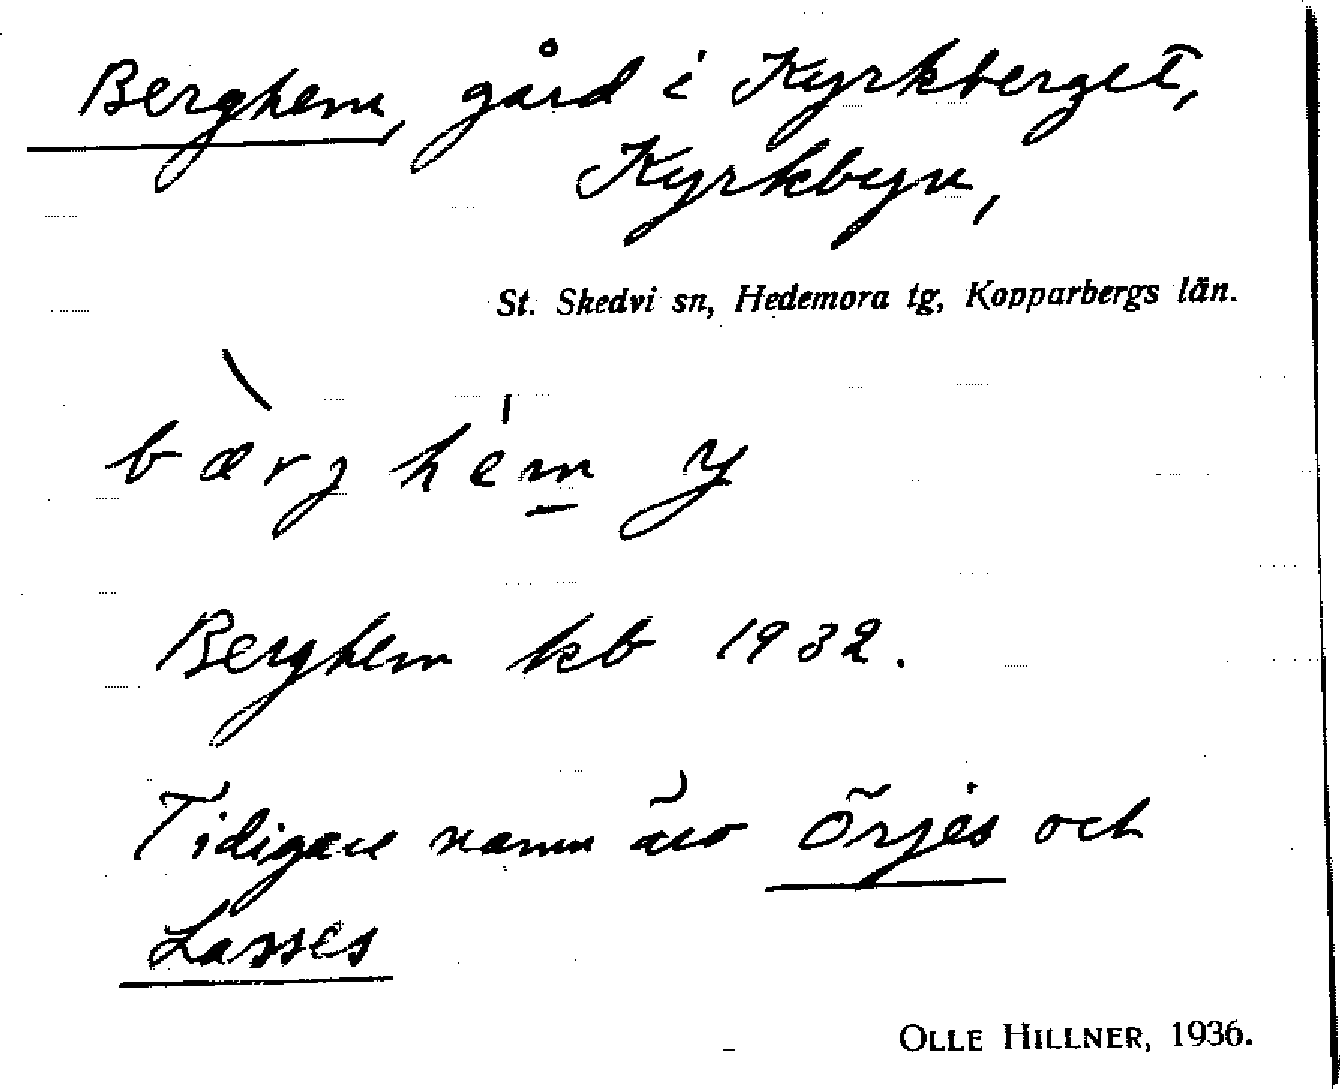 Berghem, gård i Kyrkberget,
Kyrkbyn,
St. Skedvi sn, Hedemora tg, Kopparbergs län.
bærg hem y
Berghem kb 1932.
Tidigare namn äro Örjes och
Lasses
OLLE HILLNER, 1936.